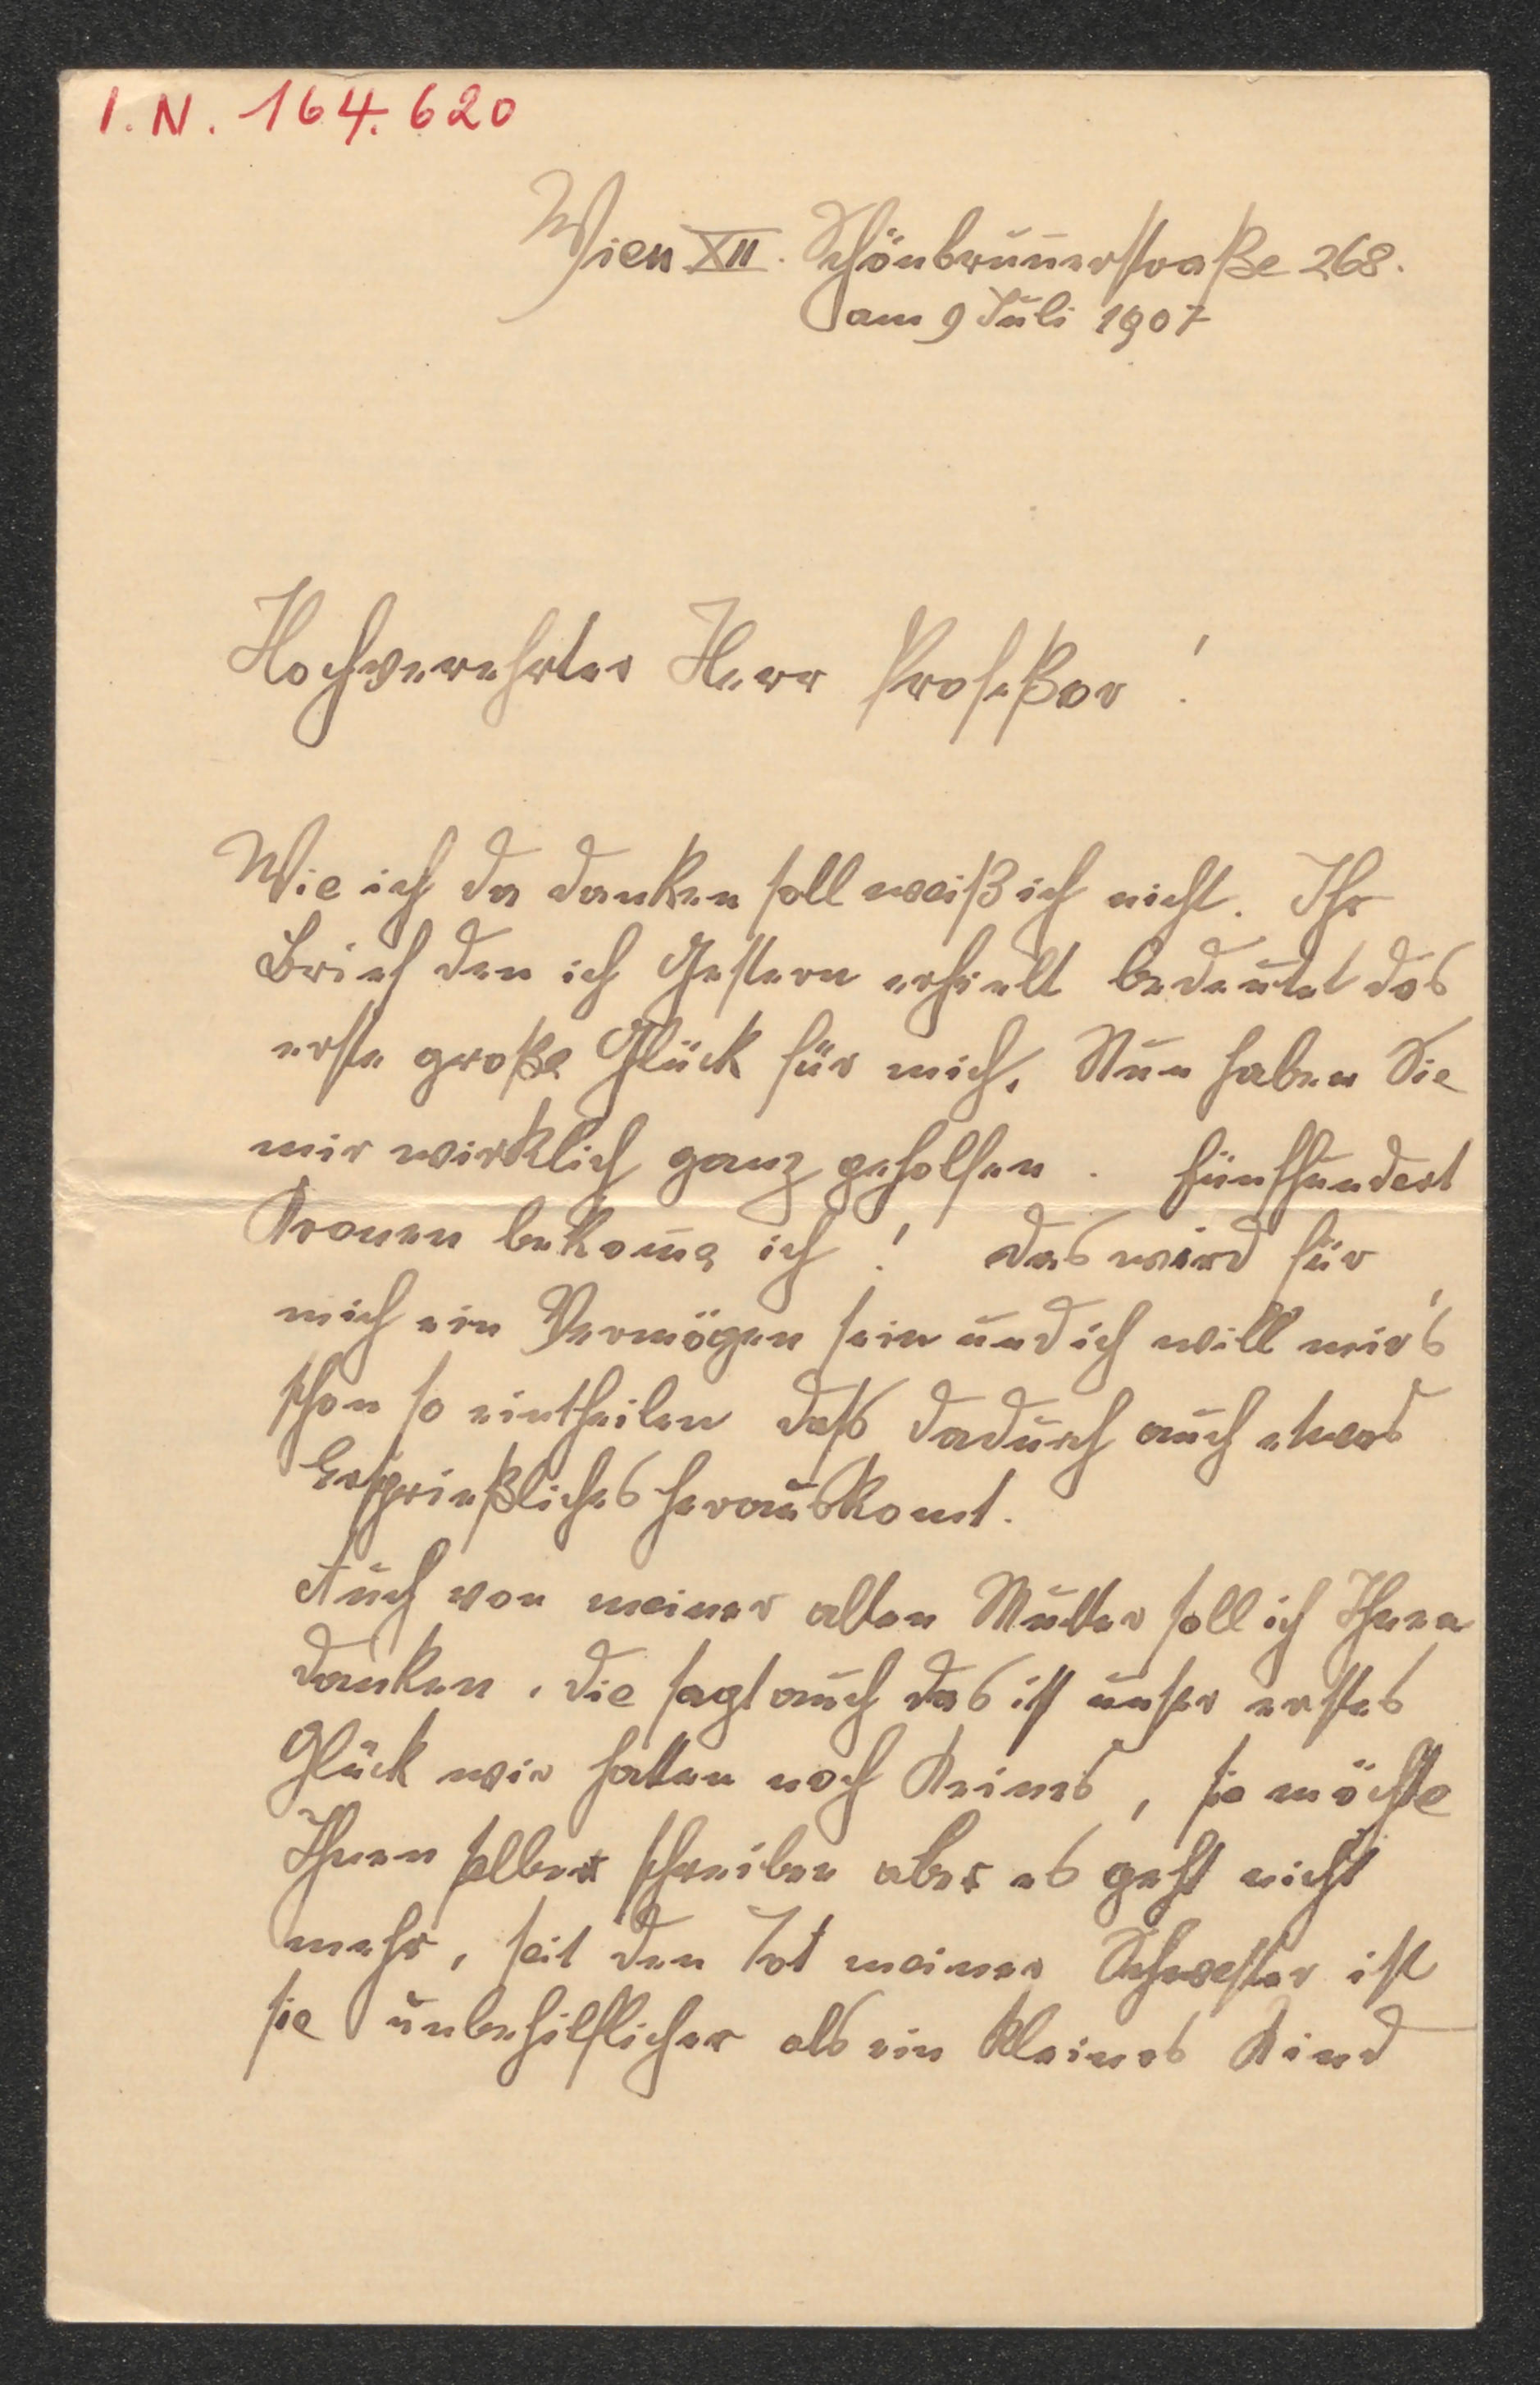 I. N. 164.620
Wien XII. Schönbrunnerstraße 268.
am 9 Juli 1907
Hochverehrter Herr Profeßor!
Wie ich da danken soll weiß ich nicht. Ihr
Brief den ich Gestern erhielt bedeutet das
erste große Glück für mich. Nun haben Sie
mir wirklich ganz geholfen. Fünfhundert
Kronen bekom̄e ich! das wird für
mich ein Vermögen sein und ich will mir's
schon so eintheilen daß dadurch auch etwas
Ersprießliches herauskom̄t.
Auch von meiner alten Mutter soll ich Ihnen
danken, die sagt auch das ist unser erstes
Glück wir hatten noch keines, sie möchte
Ihnen selber schreiben aber es geht nicht
mehr, seit den Tot meiner Schwester ist
sie unbehilflicher als ein kleines Kind